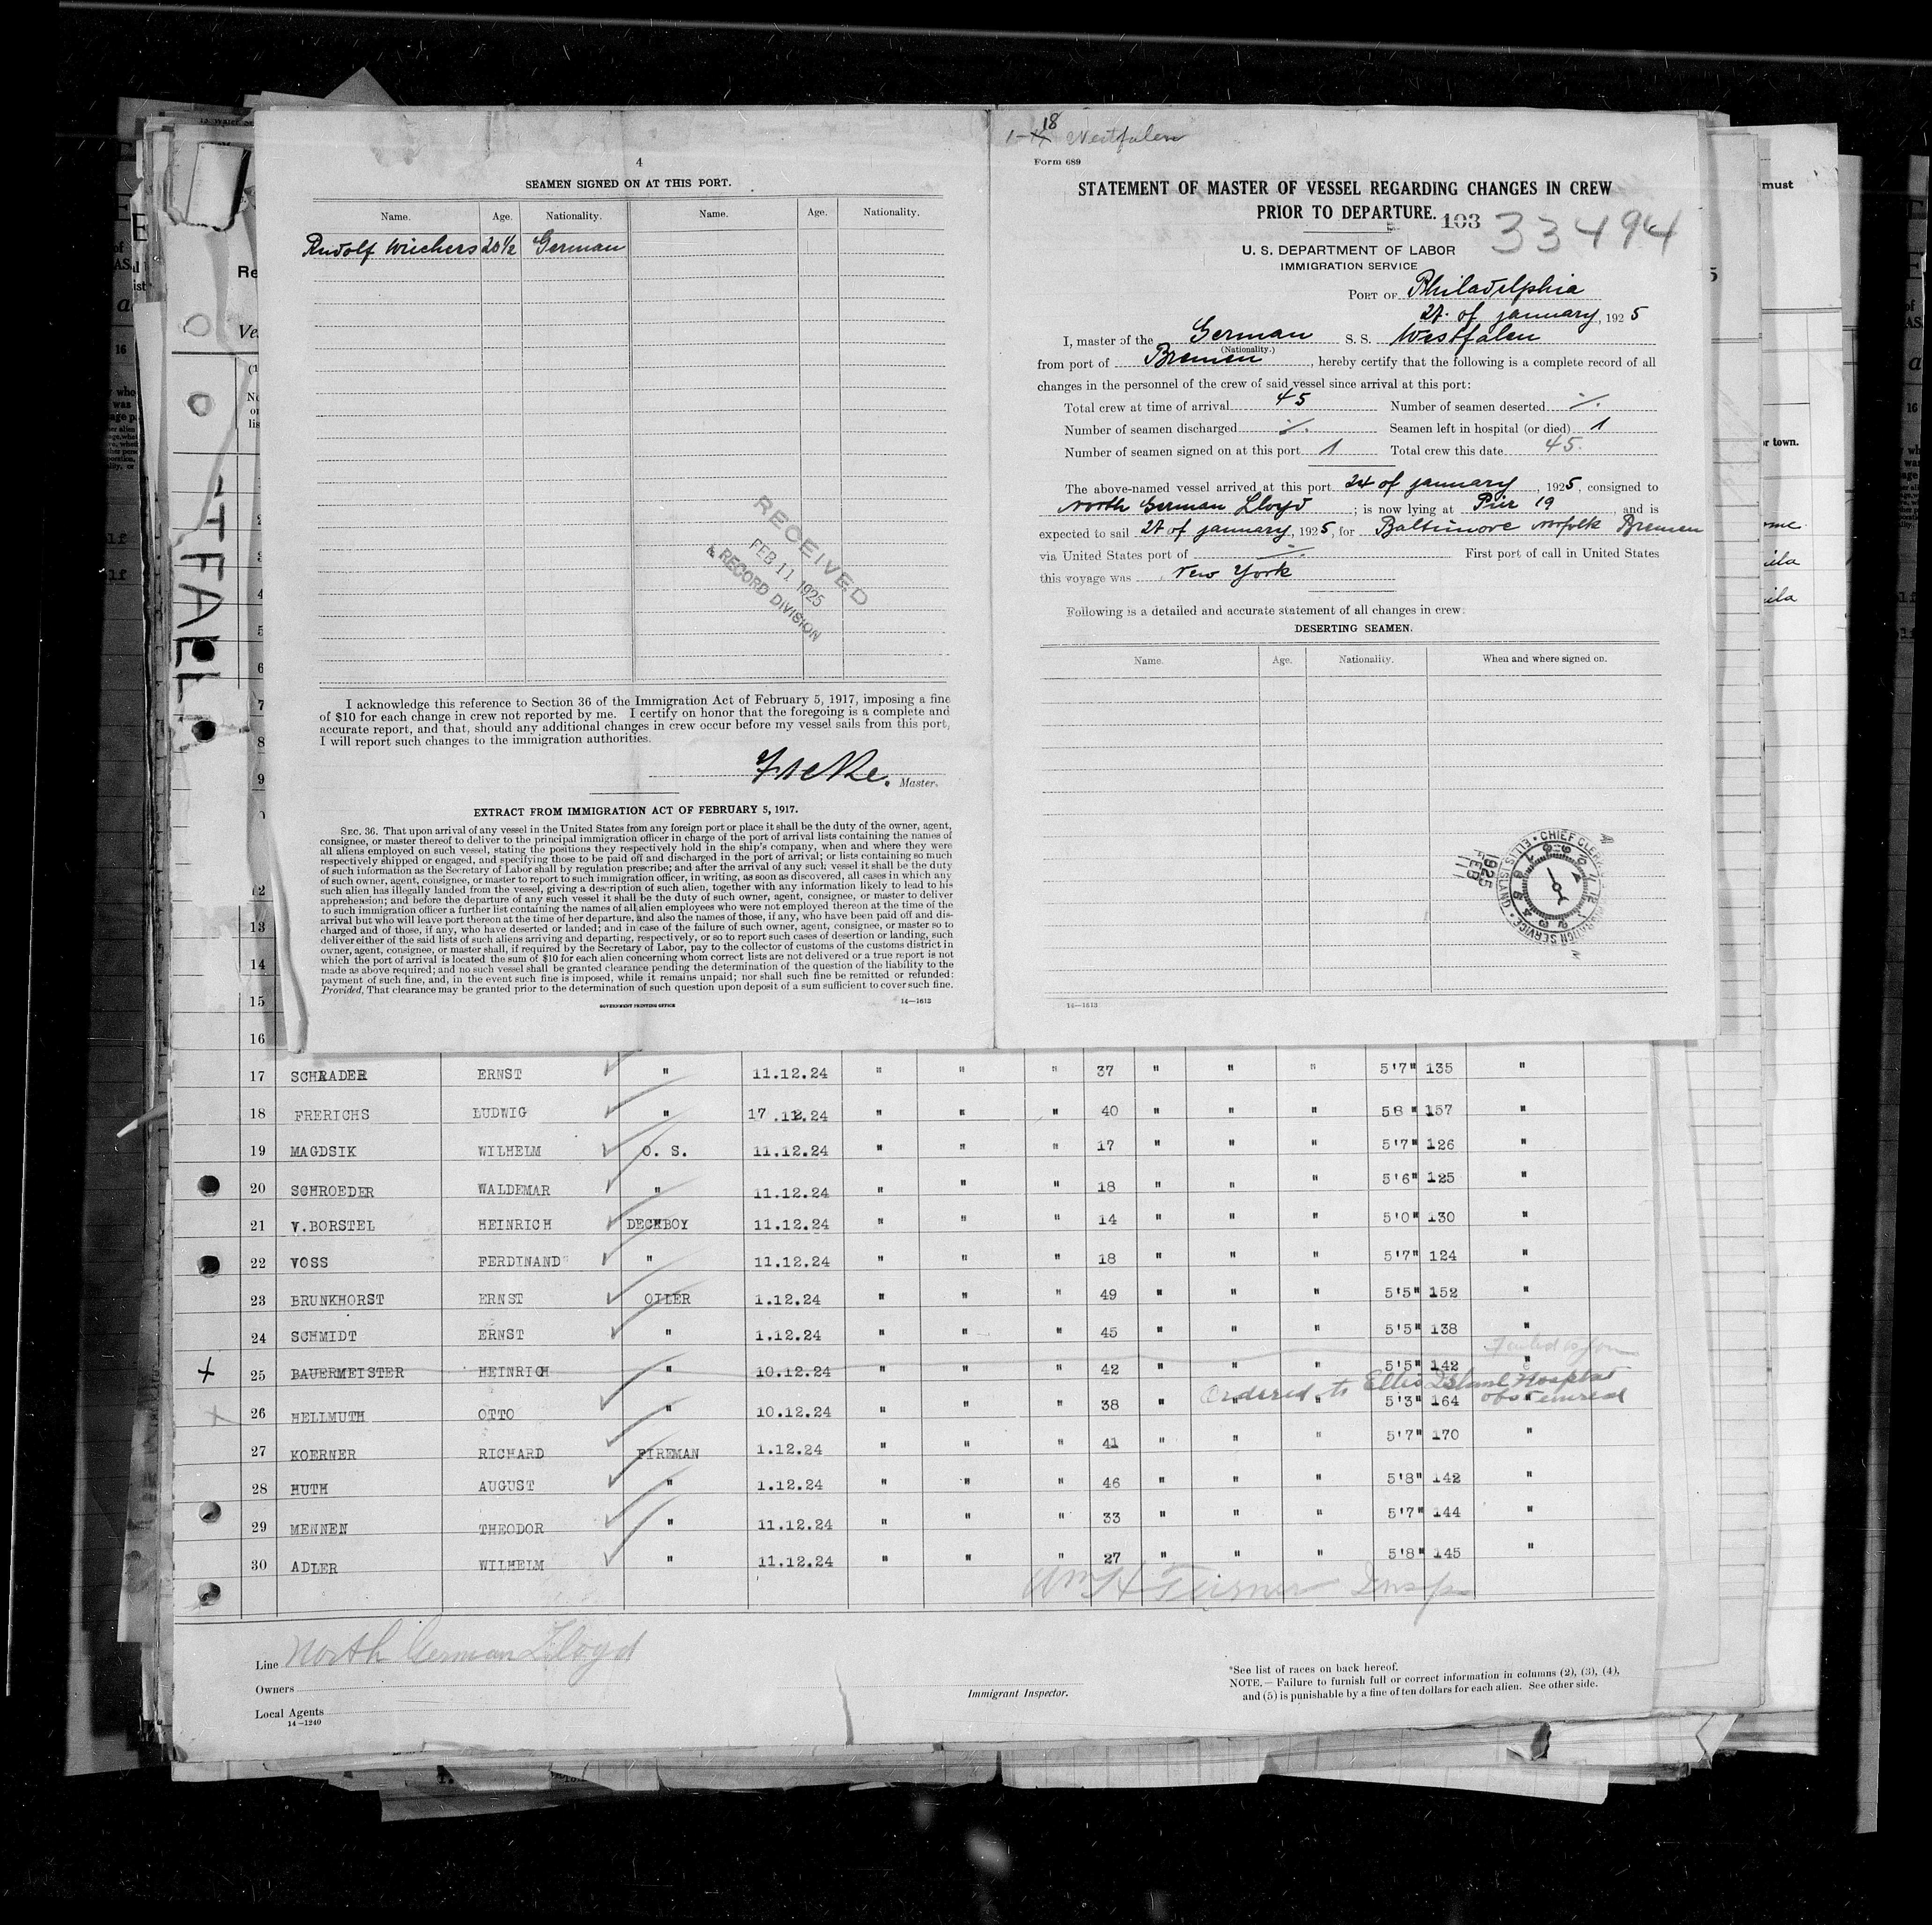 4
SEAMEN SIGNED ON AT THIS PORT.
Name. Age. Nationality. Name. Age. Nationality.
Rudolf Wiechers 20½ German
RECEIVED
FEB 11 1925
& RECORD DIVISION
I acknowledge this reference to Section 36 of the Immigration Act of February 5, 1917, imposing a fine
of $10 for each change in crew not reported by me. I certify on honor that the foregoing is a complete and
accurate report, and that, should any additional changes in crew occur before my vessel sails from this port,
I will report such changes to the immigration authorities.
Master.
EXTRACT FROM IMMIGRATION ACT OF FEBRUARY 5, 1917.
SEC. 36. That upon arrival of any vessel in the United States from any foreign port or place it shall be the duty of the owner, agent,
consignee, or master thereof to deliver to the principal immigration officer in charge of the port of arrival lists containing the names of
all aliens employed on such vessel, stating the positions they respectively hold in the ship's company, when and where they were
respectively shipped or engaged, and specifying those to be paid off and discharged in the port of arrival; or lists containing so much
of such information as the Secretary of Labor shall by regulation prescribe; and after the arrival of any such vessel it shall be the duty
of such owner, agent, consignee, or master to report to such immigration officer, in writing, as soon as discovered, all cases in which any
such alien has illegally landed from the vessel, giving a description of such alien, together with any information likely to lead to his
apprehension; and before the departure of any such vessel it shall be the duty of such owner, agent, consignee, or master to deliver
to such immigration officer a further list containing the names of all alien employees who were not employed thereon at the time of the
arrival but who will leave port thereon at the time of her departure, and also the names of those, if any, who have been paid off and dis-
charged and of those, if any, who have deserted or landed; and in case of the failure of such owner, agent, consignee, or master so to
deliver either of the said lists of such aliens arriving and departing, respectively, or so to report such cases of desertion or landing, such
owner, agent, consignee, or master shall, if required by the Secretary of Labor, pay to the collector of customs of the customs district in
which the port of arrival is located the sum of $10 for each alien concerning whom correct lists are not delivered or a true report is not
made as above required; and no such vessel shall be granted clearance pending the determination of the question of the liability to the
payment of such fine, and, in the event such fine is imposed, while it remains unpaid; nor shall such fine be remitted or refunded:
Provided, That clearance may be granted prior to the determination of such question upon deposit of a sum sufficient to cover such fine.
GOVERNMENT PRINTING OFFICE 14—1613
18
Westfalen
Form 689
STATEMENT OF MASTER OF VESSEL REGARDING CHANGES IN CREW
PRIOR TO DEPARTURE. 103 33494
U. S. DEPARTMENT OF LABOR
IMMIGRATION SERVICE
PORT OF Philadelphia
27. of january, 1925
I, master of the German S. S. Westfalen
(Nationality.)
from port of Bremen, hereby certify that the following is a complete record of all
changes in the personnel of the crew of said vessel since arrival at this port:
Total crew at time of arrival 45 Number of seamen deserted ·/·
Number of seamen discharged ·/· Seamen left in hospital (or died) 1
Number of seamen signed on at this port 1 Total crew this date 45.
The above-named vessel arrived at this port 24 of january, 1925, consigned to
North German Lloyd; is now lying at Pier 19, and is
expected to sail 27 of january, 1925, for Baltimore Norfolk Bremen
via United States port of ·/· First port of call in United States
this voyage was New York
Following is a detailed and accurate statement of all changes in crew:
DESERTING SEAMEN.
Name. Age. Nationality. When and where signed on.
CHIEF CLERK ELLIS ISLAND IMMIGRATION SERVICE
1925 FEB 11
14—1613
17 SCHRADER ERNST " 11.12.24 " " " 37 " " " 5'7" 135 "
18 FRERICHS LUDWIG " 17.12.24 " " " 40 " " " 58" 157 "
19 MAGDSIK WILHELM O. S. 11.12.24 " " " 17 " " " 5'7" 126 "
20 SCHROEDER WALDEMAR " 11.12.24 " " " 18 " " " 5'6" 125 "
21 V.BORSTEL HEINRICH DECKBOY 11.12.24 " " " 14 " " " 5'0" 130 "
22 VOSS FERDINAND " 11.12.24 " " " 18 " " " 5'7" 124 "
23 BRUNKHORST ERNST OILER 1.12.24 " " " 49 " " " 5'5" 152 "
24 SCHMIDT ERNST " 1.12.24 " " " 45 " " " 5'5" 138 "
25 BAUERMEISTER HEINRICH " 10.12.24 " " " 42 " " " 5'5" 142 "
Ordered to Ellis Island Hospital
26 HELLMUTH OTTO " 10.12.24 " " " 38 " " " 5'3" 164 "
27 KOERNER RICHARD FIREMAN 1.12.24 " " " 41 " " " 5'7" 170 "
28 HUTH AUGUST " 1.12.24 " " " 46 " " " 5'8" 142 "
29 MENNEN THEODOR " 11.12.24 " " " 33 " " " 5'7" 144 "
30 ADLER WILHELM " 11.12.24 " " " 27 " " " 5'8" 145 "
Wm H Turner Insp
Line North German Lloyd
Owners
Local Agents
14—1240
Immigrant Inspector.
*See list of races on back hereof.
NOTE.—Failure to furnish full or correct information in columns (2), (3), (4),
and (5) is punishable by a fine of ten dollars for each alien. See other side.